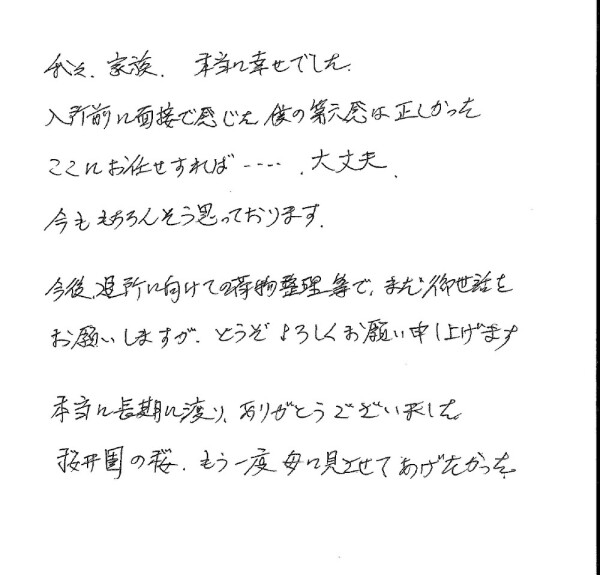 私達、家族、本当に幸せでした。
入所前に面接で感じた僕の第六感は正しかった
ここにお任せすれば‥‥、大丈夫、
今ももちろんそう思っております。
今後、退所に向けての荷物整理等で、まだ御世話を
お願いしますが、どうぞよろしくお願い申し上げます
本当に長期に渡り、ありがとうございました。
桜井園の桜、もう一度母に見せてあげたかった。